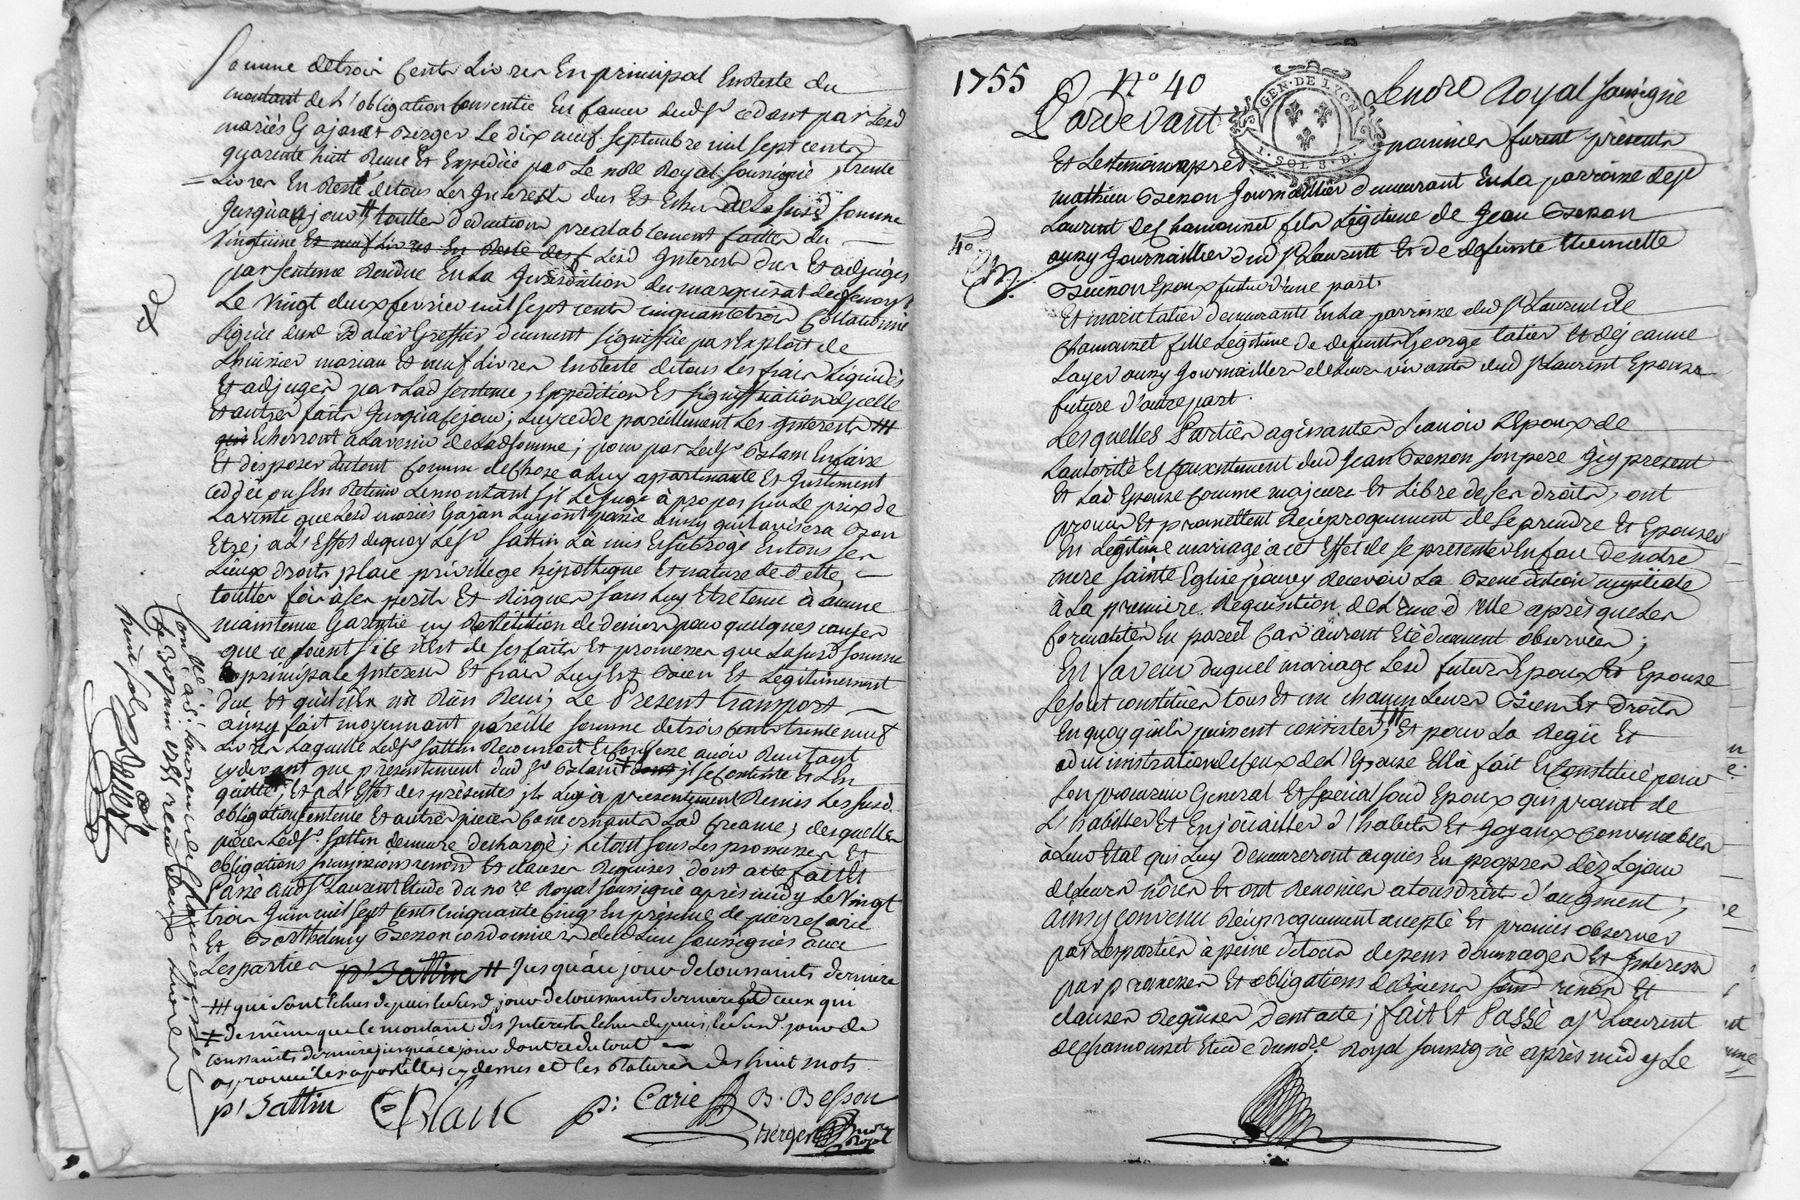 somme de trois cents livres en principal en reste du
montant de l'obligation consentie en faveur dud sr cedant par lesd
mariés Gajan et Berger le dix neuf septembre mil sept cents
quarente huit receue et expediée par le nore royal soussigné, trente
livres en reste de tous les interests dus et echus de la susd somme
jusqu'à ce jour # toutte deduction prealablement faitte du
vingtieme et neuf livres en reste des lesd interests dus et adjugés
par sentence rendue en la jurisdiction du marquisat de
le vingt deux fevrier mil sept cents cinquante trois
signée dud greffier duement signiffiée par exploit de
l'huissier et neuf livres en reste de tous les frais liquidés
et adjugés par lad sentence, expedition et signiffication d'ycelle
et autres faits jusqu'à ce jour; luy cedde pareillement les interests
qui echerront à l'avenir de lad somme; pour par led sr en faire
et disposer du tout comme de chose à luy appartenante et justement
ceddée ou s'en retenir le montant s'il le juge à propos sur le prix de
la vente que lesd mariés Gajan luy ont passé ainsy qu'il avisera bon
etre; à l'effet de quoy led sr Sattin l'a mis et subrogé en tous ses
lieux droits place privillege hipothèque et nature de dette
toutte fois à ses perils et risques sans luy etre tenu à aucune
maintenue garantie ny restitution de deniers pour quelques causes
que ce soient si ce n'est de ses faits et promesses que la susd somme
principale interests et frais luy est bien et legitimement
due et qu'il n'en a rien receu; le present transport
ainsy fait moyennant pareille somme de trois cents trente neuf
livres laquelle led sr Sattin reconnoit et confesse avoir receu tant
cy devant que presentement dud sr il se contente et l'en
quitte; et à l'effet des présentes il luy a presentement remis les susd
obligation sentence et autres pieces concernants lad creance; desquelles
pieces led sr Sattin demeure dechargé; le tout sous les promesses et
obligations soumissions renon et clauses requises dont acte fait et
passé aud st Laurent etude du nore royal soussigné après midy le vingt
trois juin mil sept cents cinquante cinq en présence de pierre Carie
et Barthelemy Besson cordonniers dud lieu soussignés avec
les parties p! Sattin # jusqu'au jour de toussaints derniere
qui sont echus depuis le susd jour de toussaints derniere et ceux qui
de même que le montant des interests echus depuis le susd jour de
toussaints derniere jusqu'à ce jour
aprouvé les apostilles cy dessus et les ratures des huit mots
p! Sattin Blanc p: Carie B. Besson
Berger nore royal
Controllé à st Laurent de Chamousset
juin 1755 reçu deux livres
neuf sols
1755
No 40
Pardevant le nore royal soussigné
GEN · DE LYON
1 · SOL 8 · D ·
et les temoins après nommés furent présents
mathieu Besson journaillier demeurant en la parroisse de st
Laurent de Chamousset fils légitime de Jean Besson
aussy journaillier dud st Laurent et de defunte
Guinon epoux futur d'une part
40
et marie tatier demeurante en la parroisse dud st Laurent de
Chamousset fille légitime de defunt George tatier et de jeanne
Layer aussy journailliers de leur vivant dud st Laurent epouse
future d'autre part.
Lesquelles parties agissantes sçavoir l'epoux de
l'autorité et consentement dud Jean Besson son pere icy present
et lad epouse comme majeure et libre de ses droits, ont
promis et promettent reciproquement de se prendre et epouser
en légitime mariage à cet effet de se presenter en face de notre
mere sainte Eglise pour y recevoir la benediction nuptiale
à la premiere requisition de l'une d'elle après que les
formalités en pareil cas auront eté duement observées;
En faveur duquel mariage lesd futurs epoux et epouse
se sont constitués tous et un chacun leurs biens et droits
en quoy qu'ils puissent consister, et pour la regie et
administration de ceux de l'epouse elle a fait et constitué pour
son procureur general et special sond epoux qui promet de
l'habiller et enjoüailler d'habits et joyaux convenables
à leur etat qui luy demeureront acquis en propres dès le jour
de leurs nôces et ont renoncés à tous droits d'augment;
ainsy convenu reciproquement accepté et promis observer
par les parties à peine de tous depens dommages et interests
par promesses et obligations de biens renon et
clauses requises dont acte; fait et passé à st Laurent
de Chamousset etude du nore royal soussigné après midy le